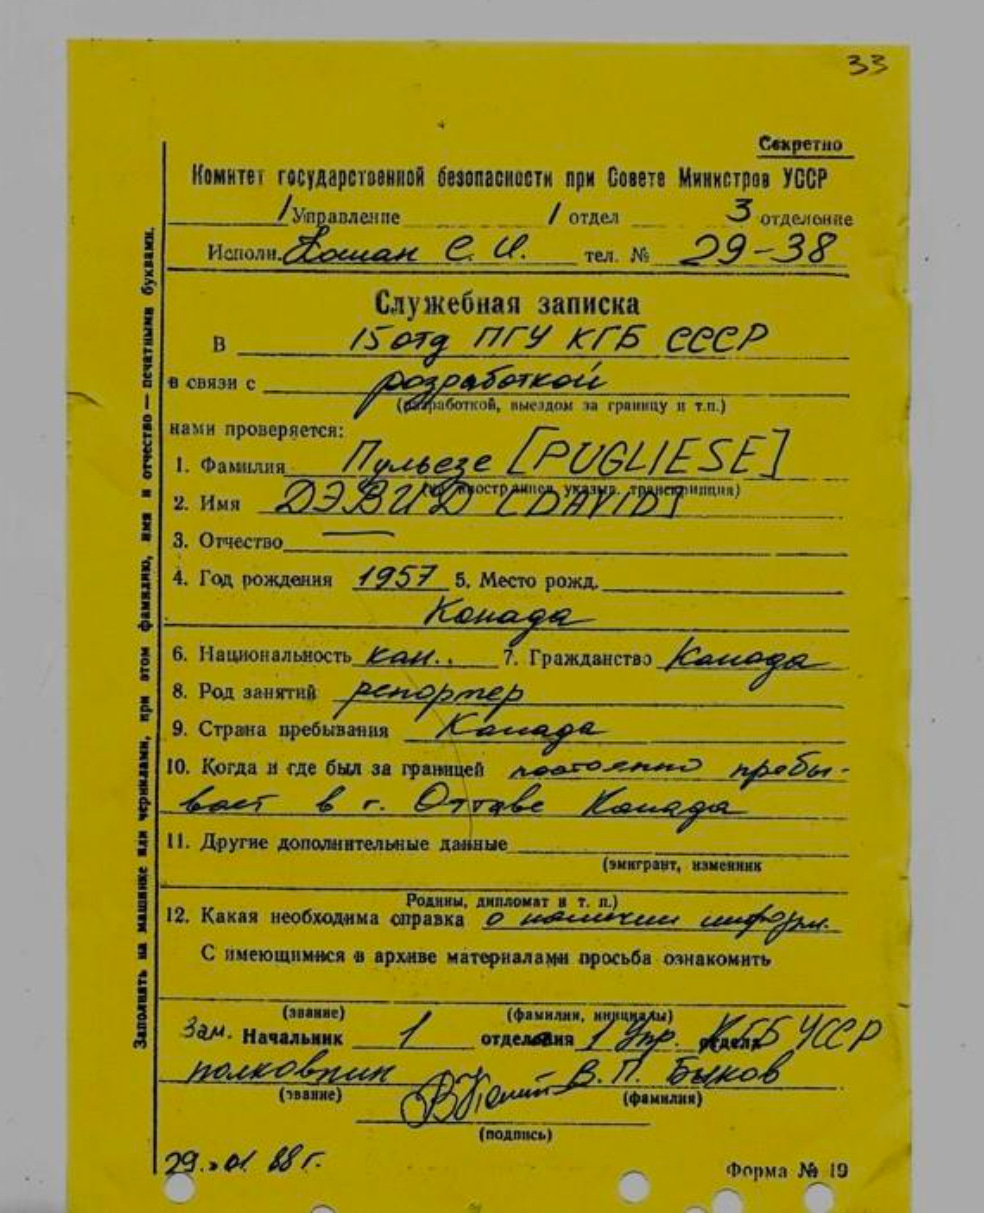 33
Секретно
Комитет государственной безопасности при Совете Министров УССР
1 Управление 1 отдел 3 отделение
Исполн. С. И. тел. № 29-38
Служебная записка
В 15 отд ПГУ КГБ СССР
в связи с розработкой
(разработкой, выездом за границу и т.п.)
нами проверяется:
1. Фамилия Пульезе [PUGLIESE]
(для иностранцев указыв. транскрипция)
2. Имя ДЭВИД [DAVID]
3. Отчество —
4. Год рождения 1957 5. Место рожд.
Канада
6. Национальность кан.. 7. Гражданство Канада
8. Род занятий репортер
9. Страна пребывания Канада
10. Когда и где был за границей постоянно пребы-
вает в г. Оттаве Канада
11. Другие дополнительные данные
(эмигрант, изменник
Родины, дипломат и т. п.)
12. Какая необходима справка о наличии информ.
С имеющимися в архиве материалами просьба ознакомить
(звание) (фамилия, инициалы)
Зам. Начальник 1 отделения 1 Упр. отдела КГБ УССР
полковник В. П. Быков
(звание) (фамилия)
(подпись)
29.01.88 г.
Форма № 19
Заполнять на машинке или чернилами, при этом фамилию, имя и отчество — печатными буквами.